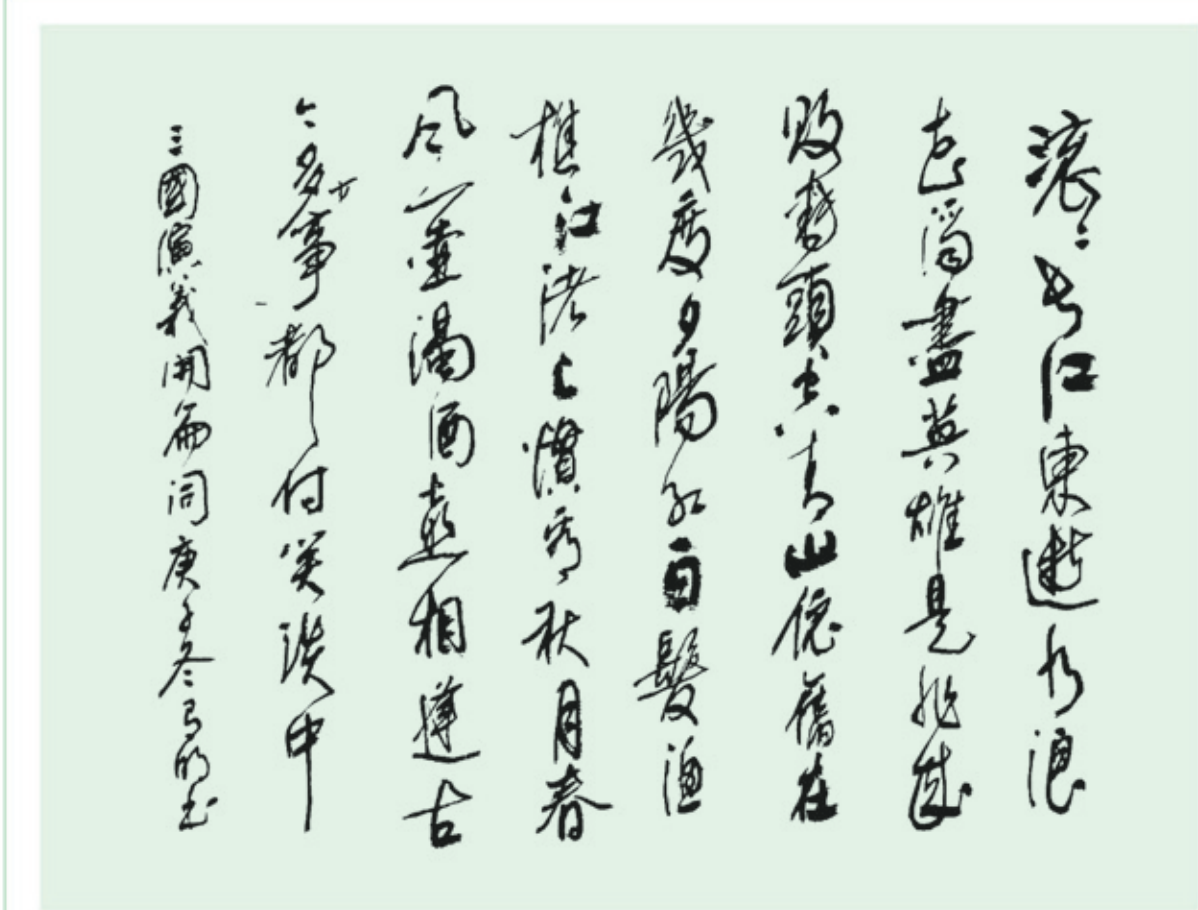 滚滚长江東逝水浪
花淘盡英雄是非成
败转頭空青山依舊在
幾度夕陽红白髮渔
樵江渚上慣看秋月春
风一壶濁酒喜相逢古
今多少事都付笑談中
三國演義開篇词庚子冬马明书